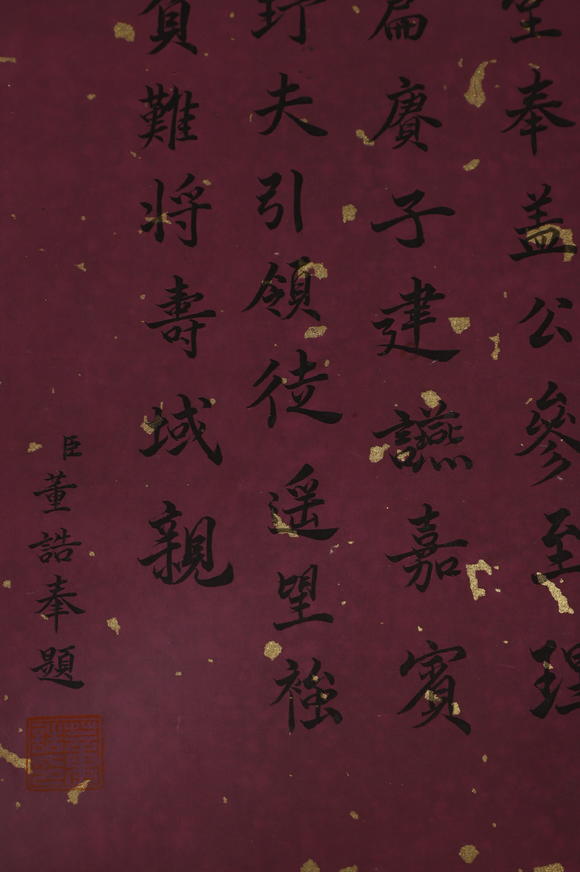 奉盖公參至理
篇賡子建讌嘉賓
夫引領徒遥望襁
負難將壽域親
臣董誥奉題